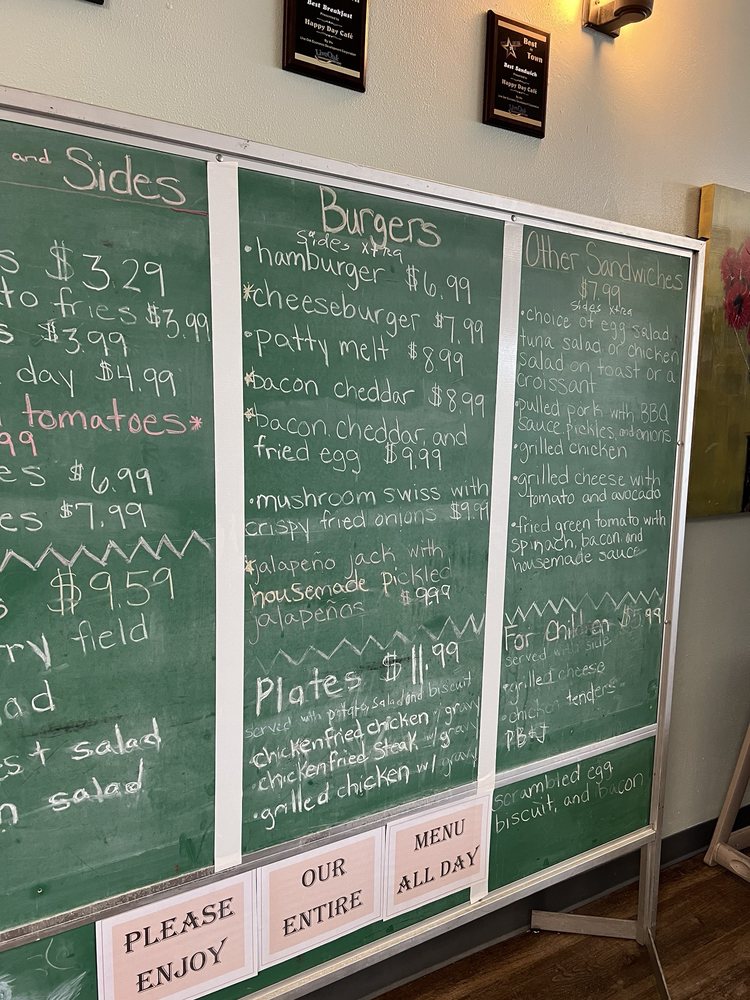 Best Breakfast
Presented to
Happy Day Café
By the
Live Oak Economic Development Corporation
LiveOak
Best
in
Town
Best Sandwich
Presented to
Happy Day Café
By the
Live Oak Economic Development Corporation
LiveOak
and Sides
s $3.29
to fries $3.99
s $3.99
day $4.99
tomatoes*
99
es $6.99
es $7.99
s $9.59
ry field
ad
es + salad
n salad
Burgers
Sides xtra
•hamburger $6.99
*cheeseburger $7.99
•patty melt $8.99
*bacon cheddar $8.99
*bacon, cheddar, and
fried egg $9.99
•mushroom swiss with
crispy fried onions $9.99
*jalapeño jack with
housemade pickled
jalapeños $9.99
Plates $11.99
served with potato, salad and biscuit
chicken fried chicken w/ gravy
•chicken fried steak w/ gravy
•grilled chicken w/ gravy
Other Sandwiches
$7.99
sides xtra
•choice of egg salad,
tuna salad or chicken
salad on toast or a
croissant
•pulled pork with BBQ
sauce, pickles, and onions
•grilled chicken
•grilled cheese with
tomato and avocado
•fried green tomato with
spinach, bacon, and
housemade sauce
For Children $5.99
served with side
•grilled cheese
•chicken tenders
PB&J
scrambled egg
biscuit, and bacon
PLEASE
ENJOY
OUR
ENTIRE
MENU
ALL DAY